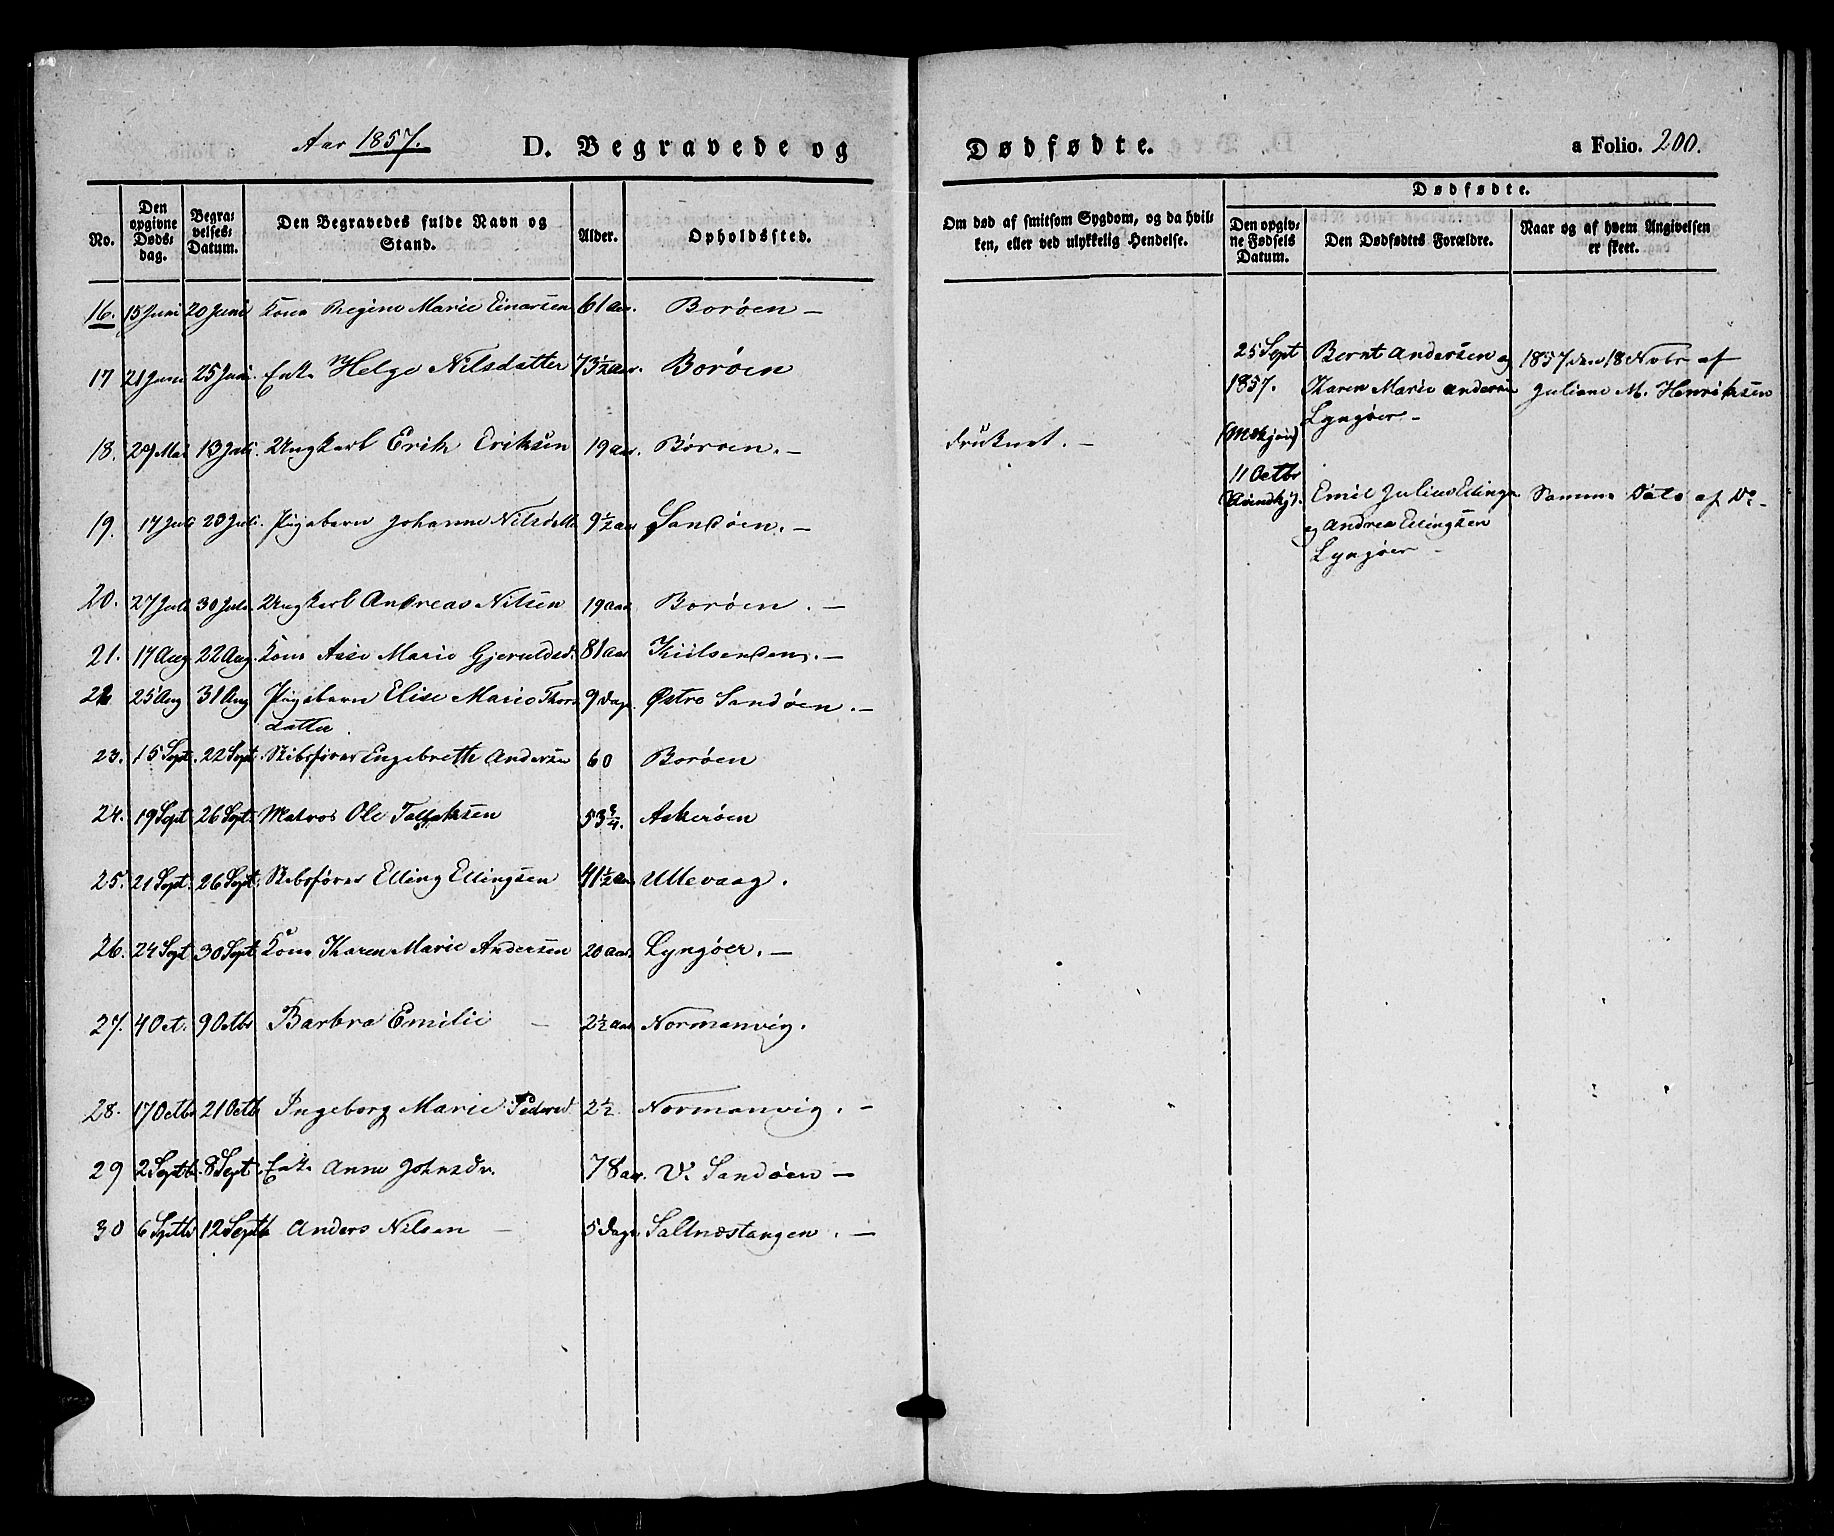 Aar 1857. D. Begravede og Dødfødte. a Folio. 200.
No. Den opgivne Døds-dag. Begra-velses-Datum. Den Begravedes fulde Navn og Stand. Alder. Opholdssted. Om død af smitsom Sygdom, og da hvil-ken, eller ved ulykkelig Hendelse. Dødfødte. Den opgiv-ne Fødsels Datum. Den Dødfødtes Forældre. Naar og af hvem Angivelsen er skeet.
16. 15 Juni 20 Juni Kone Regine Marie Einarsen 61 aar. Borøen —
17 21 Juni 25 Juni. Enke Helge Nilsdatter 73 1/2 aar. Borøen
18. 29 Mai 13 Juli. Ungkarl Erik Eriksen 19 aar. Borøen. — Druknet. —
19. 17 Juli 23 Juli. Pigebarn Johanne Nilsdatt 9 1/2 aar Sandøen. —
20. 27 Juli 30 Juli. Ungkarl Andreas Nilsen 19 aar Borøen. —
21. 17 Aug 22 Aug. Kone Aase Marie Gjeruldsd. 81 aar Kiilsenden. —
22 25 Aug 31 Aug Pigebarn Elise Marie Thors
datter 9 Dage. Østre Sandøen. —
23. 15 Sept. 22 Sept. Skibsfører Engebreth Andersen 60 Borøen
24. 19 Sept 26 Sept. Matros Ole Tallaksen 53 3/4. Askerøen
25. 21 Sept. 26 Sept. Skibsfører Elling Ellingsen 41 1/2 aar Ullevaag.
26. 24 Sept 30 Sept Kone Karen Marie Andersen 20 aar. Lyngøer. —
27. 4 Oct. 9 Octbr Barbra Emilie — 2 1/2 aar Normanvig.
28. 17 Octbr 21 Octb Ingeborg Marie Pedersd 2 1/2. Normanvig. —
29 2 Septb. 8 Sept. Enke Anne Johnsdr. 78 aar. V. Sandøen —
30 6 Septb 12 Septb Anders Nilsen — 5 Dage. Saltnæstangen. —
25 Sept Bernt Andersen og 1857 den 18 Novbr af
1857. Karen Marie Andersen Juliane M. Henriksen
Lyngøer —
(Mskjøn)
11 Octbr
(Kvindkj). Emil Julius Ellings. Samme Dato af Do —
og Andrea Ellingsen
Lyngøer —